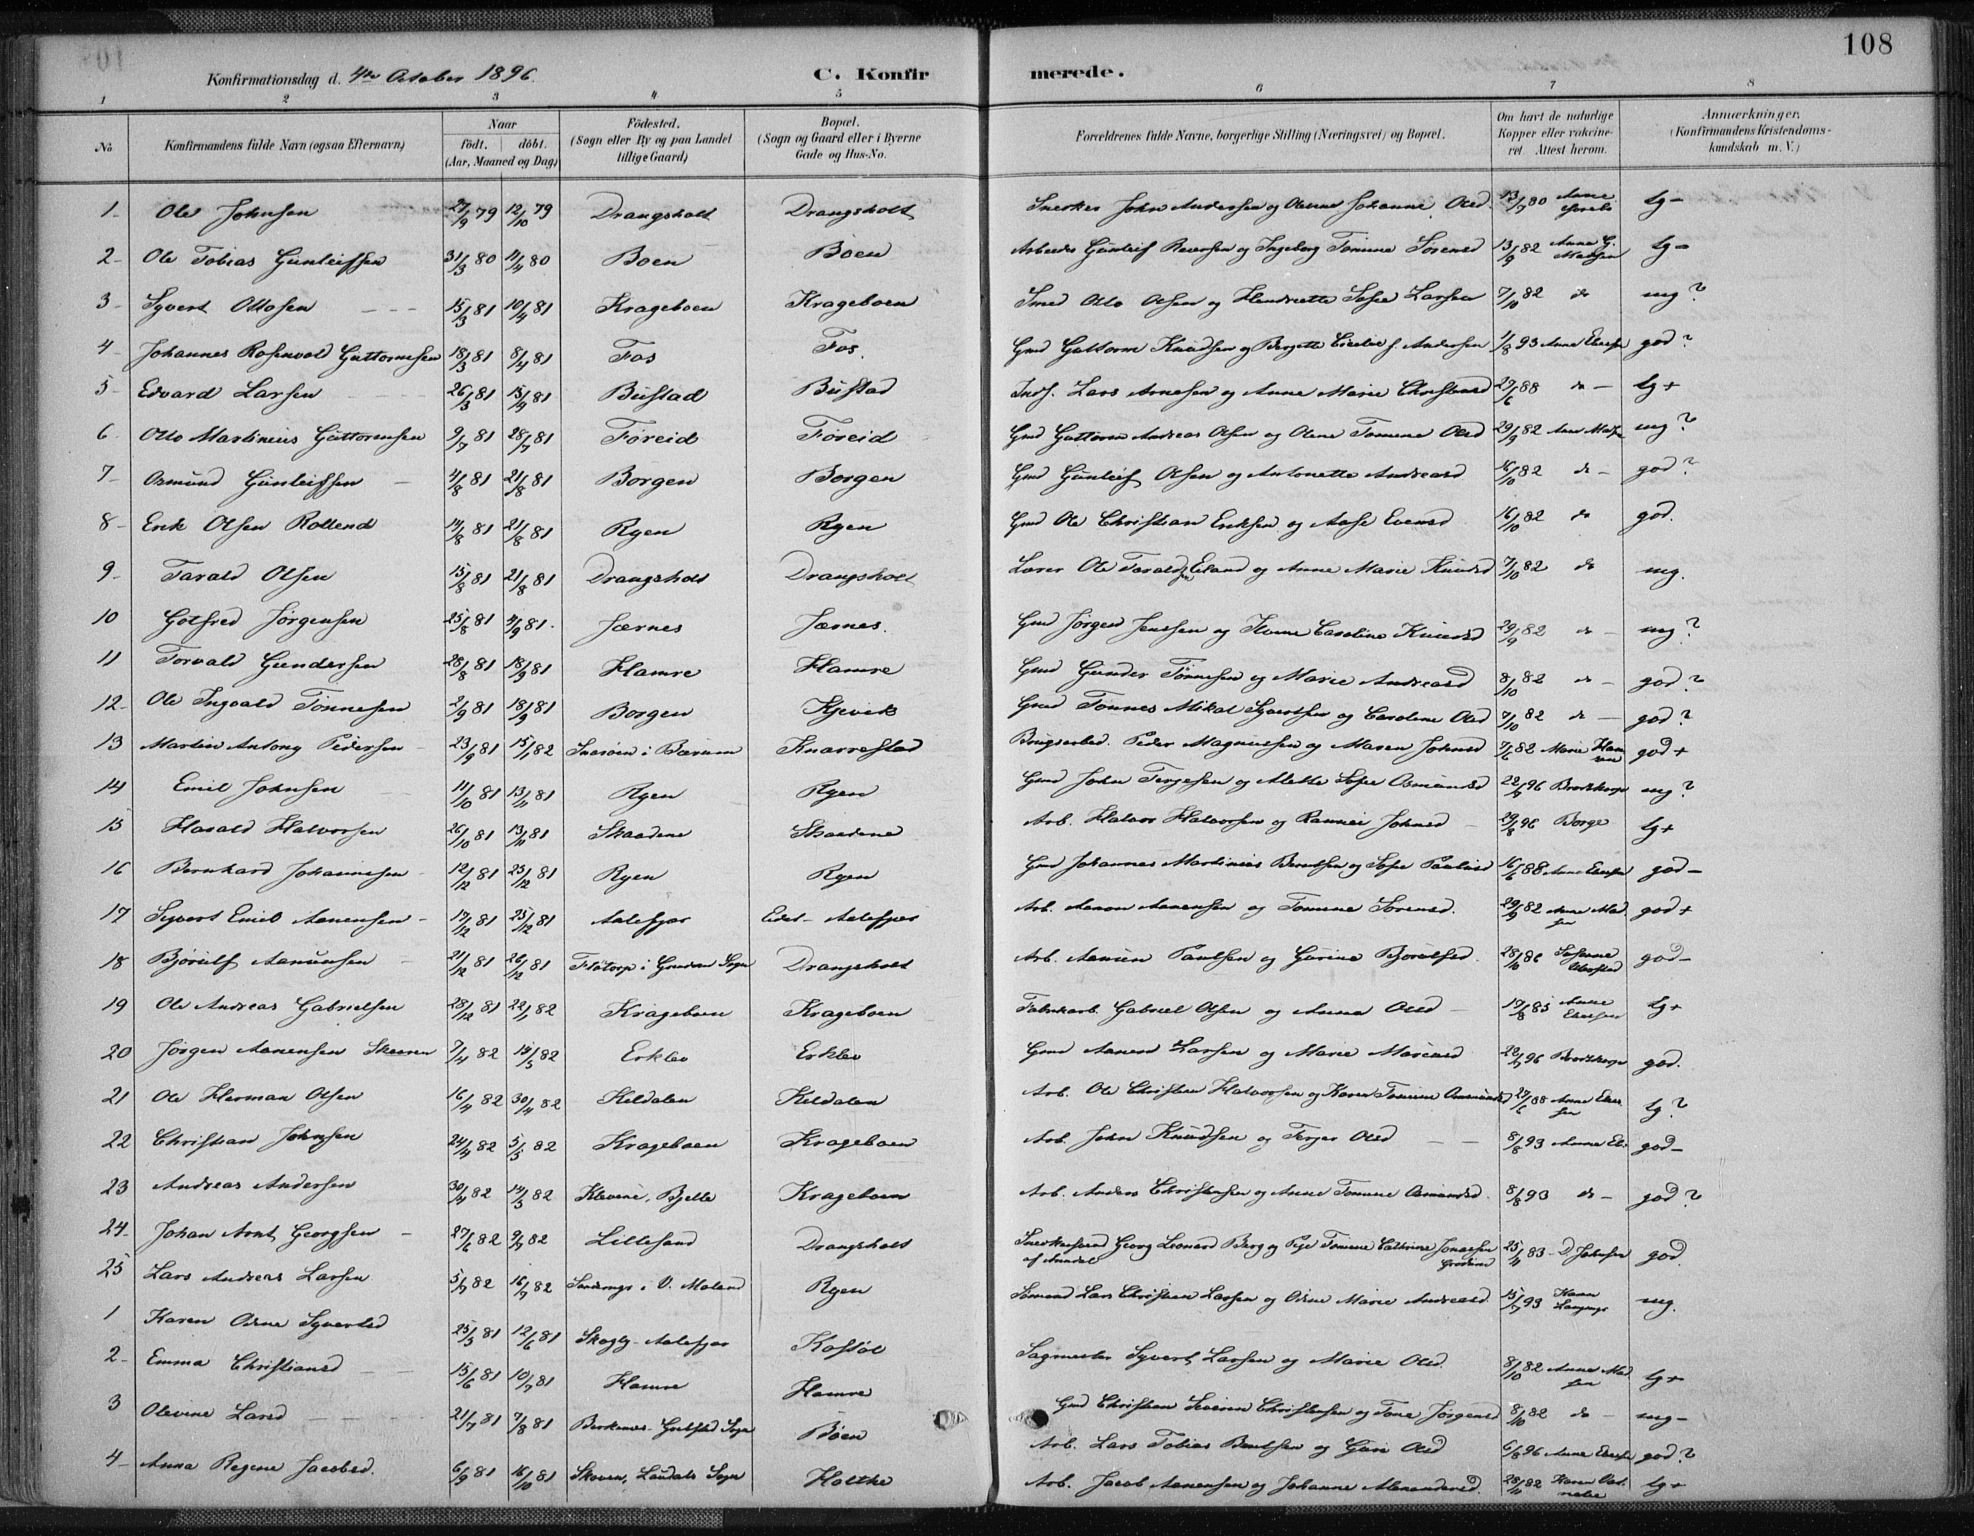 108
Konfirmationsdag d. 4de October 1896. C. Konfirmerede.
1 2 3 4 5 6 7 8
No Konfirmandens fulde Navn (ogsaa Efternavn) Naar født. døbt. (Aar, Maaned og Dag) Fødested. (Sogn eller By og paa Landet tillige Gaard) Bopæl. (Sogn og Gaard eller i Byerne Gade og Hus-No. Forældrenes fulde Navne, borgerlige Stilling (Næringsvei) og Bopæl. Om havt de naturlige Kopper eller vakcineret. Attest herom. Anmærkninger. (Konfirmandens Kristendomskundskab m. V.)
1 Ole Johnsen 27/9 79 12/10 79 Drangsholt Drangsholt Snerker John Andersen og Olene Johanne Olsd. 13/7 80 Anne tg-
2 Ole Tobias Gunleifsen 31/3 80 11/4 80 Boen Boen Arbeider Gunleif Reiersen og Ingeborg Tomine Sørensd 13/9 82 Anne G. Madsen tg-
3 Syvert Ottosen 15/3 81 10/4 81 Krageboen Krageboen Smed Otto Olsen og Hendriette Sofie Larsen 7/10 82 do mg?
4 Johannes Rosenvold Guttormsen 18/3 81 8/4 81 Fos Fos. Gmd Guttorm Knudsen og Bergette Andersen 1/8 93 Anne god?
5 Edvard Larsen 26/3 81 15/4 81 Bustad Bustad Inds. Lars Arnesen og Anne Marie Christensd 27/6 88 do - tg+
6 Otto Martinius Guttormsen 9/7 81 28/7 81 Foreid Foreid Gmd Guttorm Andreas Olsen og Olene Tomine Olsd 29/9 82 mg?
7 Osmund Gunleifsen 4/8 81 21/8 81 Borgen Borgen Gmd Gunleif Olsen og Antonette Andreasd 16/10 82 do - god?
8 Erik Olsen 14/8 81 21/8 81 Ryen Ryen Gmd Ole Christian Eriksen og Aase Evensd 16/10 82 do god.
9 Tarald Olsen 15/8 81 21/8 81 Drangsholt Drangsholt Lærer Ole Taraldsen Eiland og Anne Marie Knudsd 7/10 82 do mg.
10 Gotfred Jørgensen 25/8 81 4/9 81 Jærnes Jærnes. Gmd Jørgen Jensen og Caroline Knudsd 29/9 82 do - mg?
11 Torvald Gundersen 28/8 81 18/9 81 Hamre Hamre Gmd Gunder Tønnesen og Marie Andreasd 8/10 82 do - god?
12 Ole Ingvald Tønnesen 2/9 81 18/9 81 Borgen Kjevik Gmd Tønnes Mikal Syvertsen og Caroline Olsd 7/10 82 do - god?
13 Martin Antony Pedersen 23/9 81 15/1 82 Snarøen i Bærum Knarrestad Brugsarbed. Peder Magnussen og Maren Johnsd 7/6 82 Marie god+
14 Emil Johnsen 11/10 81 13/11 81 Ryen Ryen Gmd John Tergesen og Alette Sofie Osmundsd 22/9 96 Brodtkorp mg?
15 Harald Halvorsen 26/10 81 13/11 81 Skaadene Skaadene Arb. Halvor Halvorsen og Johnsd 29/8 96 Borge tg+
16 Bernhard Johannesen 12/12 81 25/12 81 Ryen Ryen Gmd Johannes Martinius Berntsen og Sofie Paulsd 16/6 88 Anne god-
17 Syvert Emil Aanensen 17/12 81 25/12 81 Aalefjær Aalefjær Arb. Aanon Aanensen og Tomine Sørensd. 29/9 82 Anne Madsen god+
18 Bjørulf Aanunsen 21/12 81 26/12 81 i Sogn Drangsholt Arb. Aanun Paulsen og Gurine Bjorulfsd. 28/10 86 god-
19 Ole Andreas Gabrielsen 28/12 81 22/1 82 Krageboen Krageboen Fabrikarb. Gabriel Olsen og Anna Olsd 17/8 85 Anne tg+
20 Jørgen Aanensen 7/4 82 82 Erklev Erklev Gmd Aanen Larsen og Marie 22/9 96 Brodtkorp god.
21 Ole Herman Olsen 16/4 82 30/4 82 Keldalen Keldalen Arb. Ole Christian Halvorsen og Karen Tomine Osmundsd 27/6 88 Anne tg?
22 Christian Johnsen 24/4 82 5/5 82 Krageboen Krageboen Arb. John Knudsen og Terjer Olsd 8/8 93 Anne god-
23 Andreas Andersen 30/4 82 14/5 82 Klevene, Krageboen Arb. Anders Christensen og Anne Tomine Osmundsd. 8/8 93 do - god?
24 Johan Arnt Georgsen 27/6 82 9/7 82 Lillesand Drangsholt Snerkersvend Georg Leonard Berg og Tomine Cathrine Jonassen af Arendal 25/4 83 D Johnsen god.
25 Lars Andreas Larsen 5/7 82 16/7 82 i V. Moland Ryen Sømand Lars Christian Larsen og Marie Andreasd 15/7 93 mg.
1 Karen Syvertsd 25/5 81 12/6 81 Aalefjær Kostøl Sagmester Syvert Larsen og Marie Olsd. 8/10 82 Anne Madsen tg+
2 Emma Christiansd 15/6 81 10/7 81 Hamre Hamre Gmd Christian Severin Christensen og Tone Jørgensd 8/10 82 do - mg-
3 Olevine Larsd 21/7 81 7/8 81 Sogn Bøen Arb. Lars Tobias Berntsen og Guri Olsd 6/8 96 Anne god?
4 Anna Regine Jacobsd. 6/9 81 16/10 81 Laudals Sogn Holtke Arb. Jacob Aanensen og Johanne 28/11 82 tg+